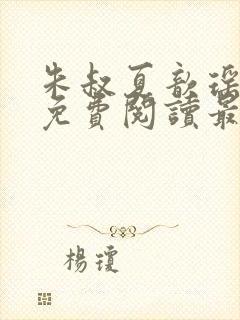 朱叔夏歆瑶
免費閱讀最
楊瓊